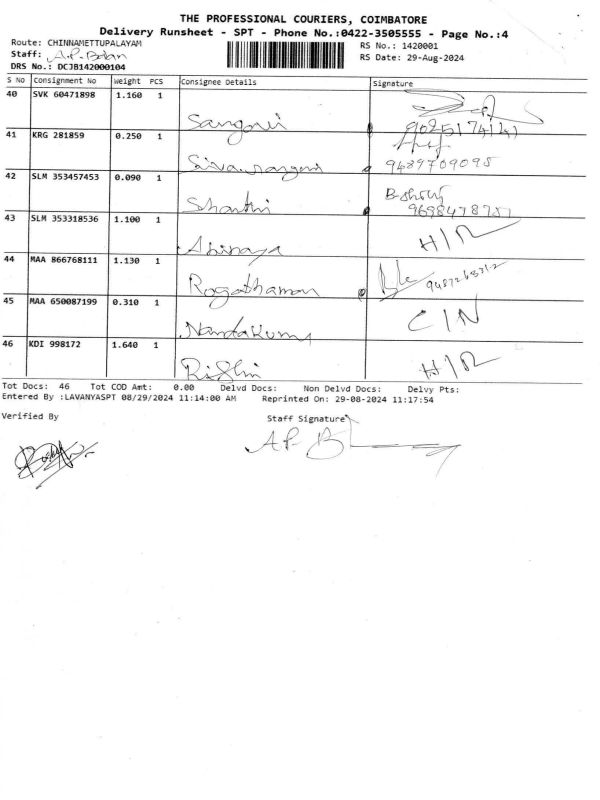 THE PROFESSIONAL COURIERS, COIMBATORE
Delivery Runsheet - SPT - Phone No.:0422-3505555 - Page No.:4
Route: CHINNAMETTUPALAYAM
RS No.: 1420001
Staff: A.P. Balan
RS Date: 29-Aug-2024
DRS No.: DCJB142000104
S No Consignment No Weight PCS Consignee Details Signature
40 SVK 60471898 1.160 1
Sangavi
41 KRG 281859 0.250 1
9489709098
42 SLM 353457453 0.090 1
Shanthi
43 SLM 353318536 1.100 1 H/R
Abinaya
44 MAA 866768111 1.130 1
45 MAA 650087199 0.310 1 C/N
Nandakumar
46 KDI 998172 1.640 1 H/R
Rishin
Tot Docs: 46 Tot COD Amt: 0.00 Delvd Docs: Non Delvd Docs: Delvy Pts:
Entered By :LAVANYASPT 08/29/2024 11:14:00 AM Reprinted On: 29-08-2024 11:17:54
Verified By Staff Signature
A.P. B